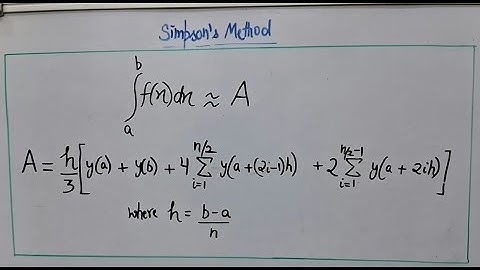 Simpson's Method
∫_a^b f(x)dx ≈ A
A = h/3 [y(a) + y(b) + 4 ∑_{i=1}^{n/2} y(a+(2i-1)h) + 2 ∑_{i=1}^{n/2-1} y(a + 2ih)]
where h = b-a/n